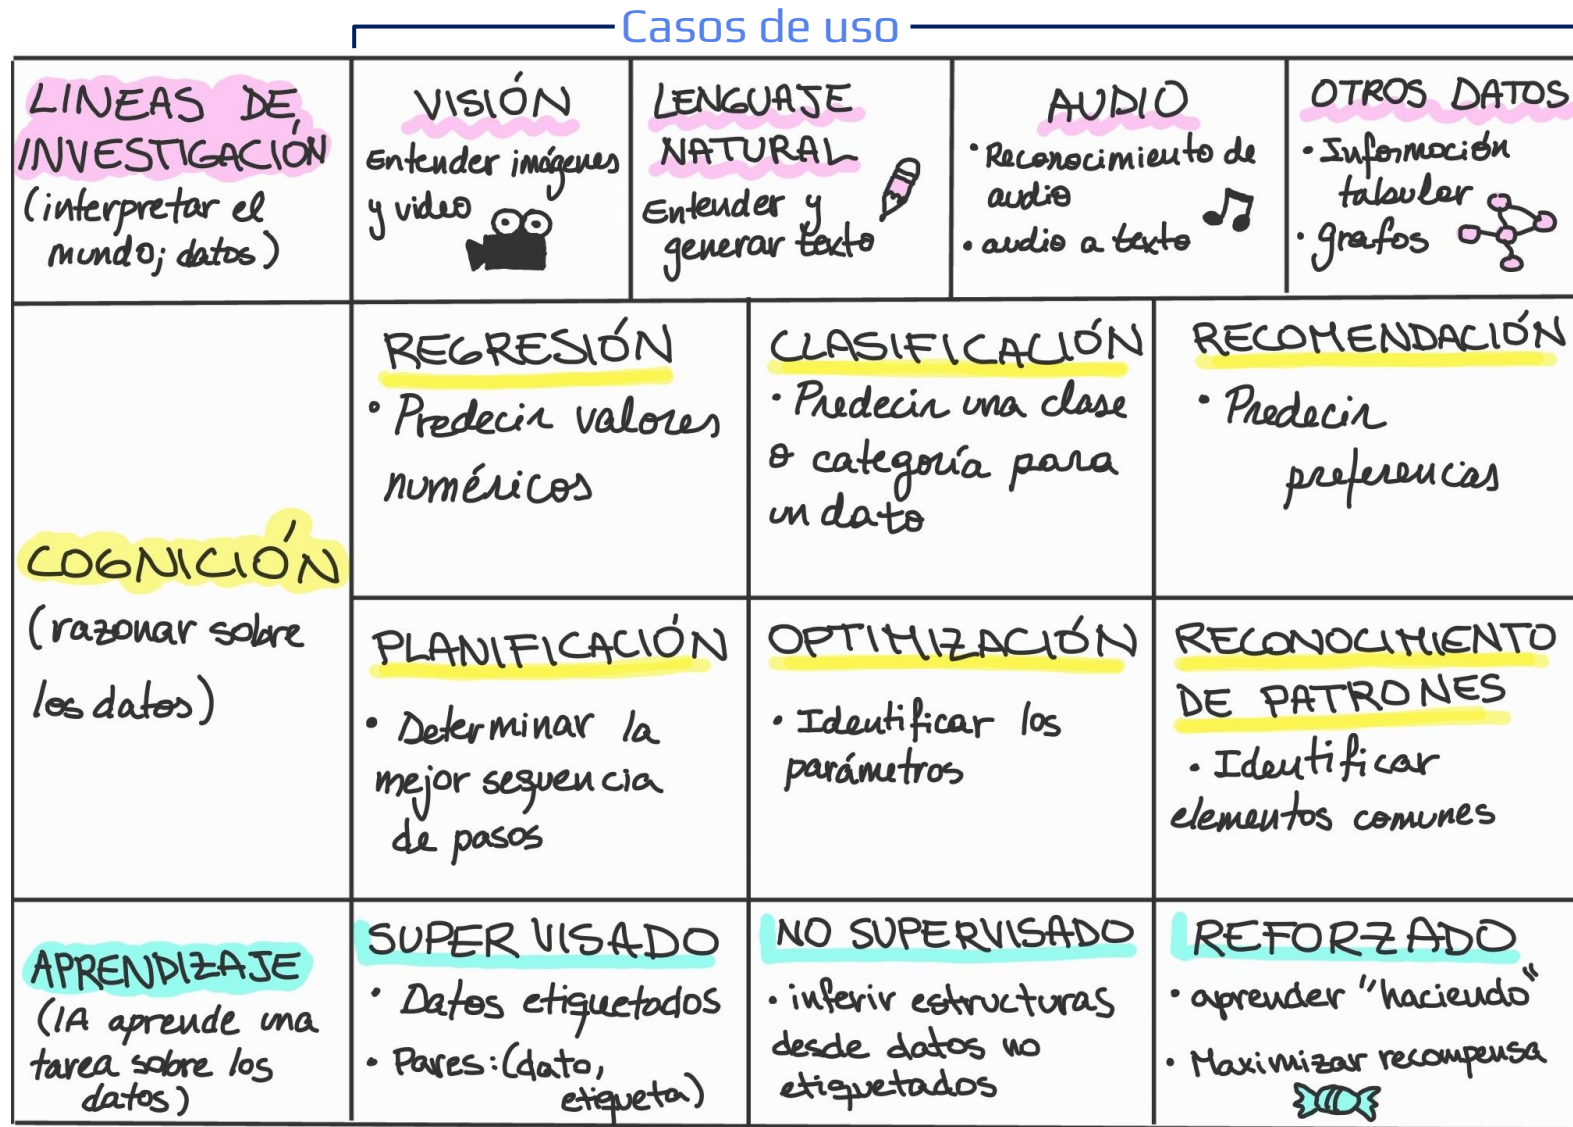 Casos de uso
LINEAS DE
INVESTIGACIÓN
(interpretar el
mundo; datos)
VISIÓN
Entender imágenes
y video
LENGUAJE
NATURAL
Entender y
generar texto
AUDIO
• Reconocimiento de
audio
• audio a texto
OTROS DATOS
• Información
tabular
• grafos
COGNICIÓN
(razonar sobre
los datos)
REGRESIÓN
• Predecir valores
numéricos
CLASIFICACIÓN
• Predecir una clase
o categoría para
un dato
RECOMENDACIÓN
• Predecir
preferencias
PLANIFICACIÓN
• Determinar la
mejor sequencia
de pasos
OPTIMIZACIÓN
• Identificar los
parámetros
RECONOCIMIENTO
DE PATRONES
• Identificar
elementos comunes
APRENDIZAJE
(IA aprende una
tarea sobre los
datos)
SUPERVISADO
• Datos etiquetados
• Pares: (dato,
etiqueta)
NO SUPERVISADO
• inferir estructuras
desde datos no
etiquetados
REFORZADO
• aprender "haciendo"
• Maximizar recompensa